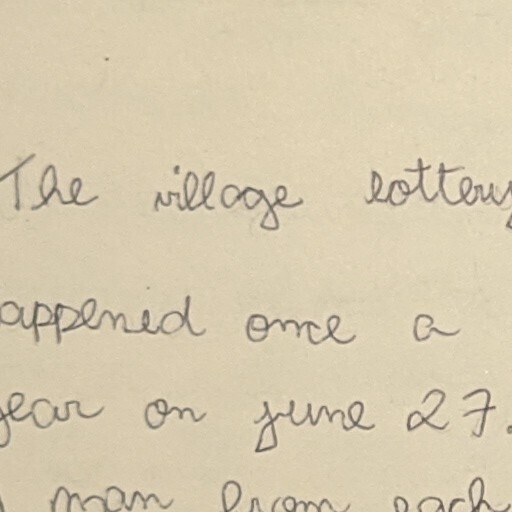 The village lottery
appened once a
year on june 27.
man from each